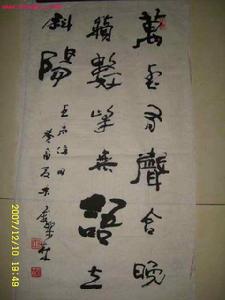 萬壑有聲含晚
籟數峯無語立
斜陽
2007/12/10 19:49